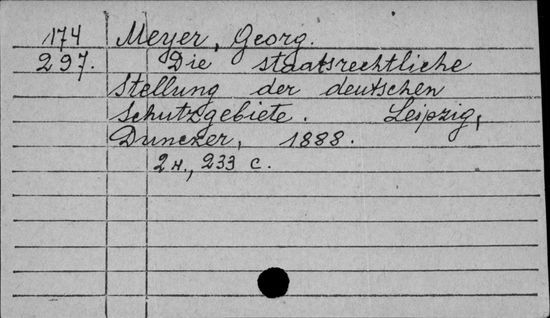 174 Meyer, Georg.
297. Die staatsrechtliche
Stellung der deutschen
Schutzgebiete. Leipzig,
Duncker, 1888.
2 н., 233 с.